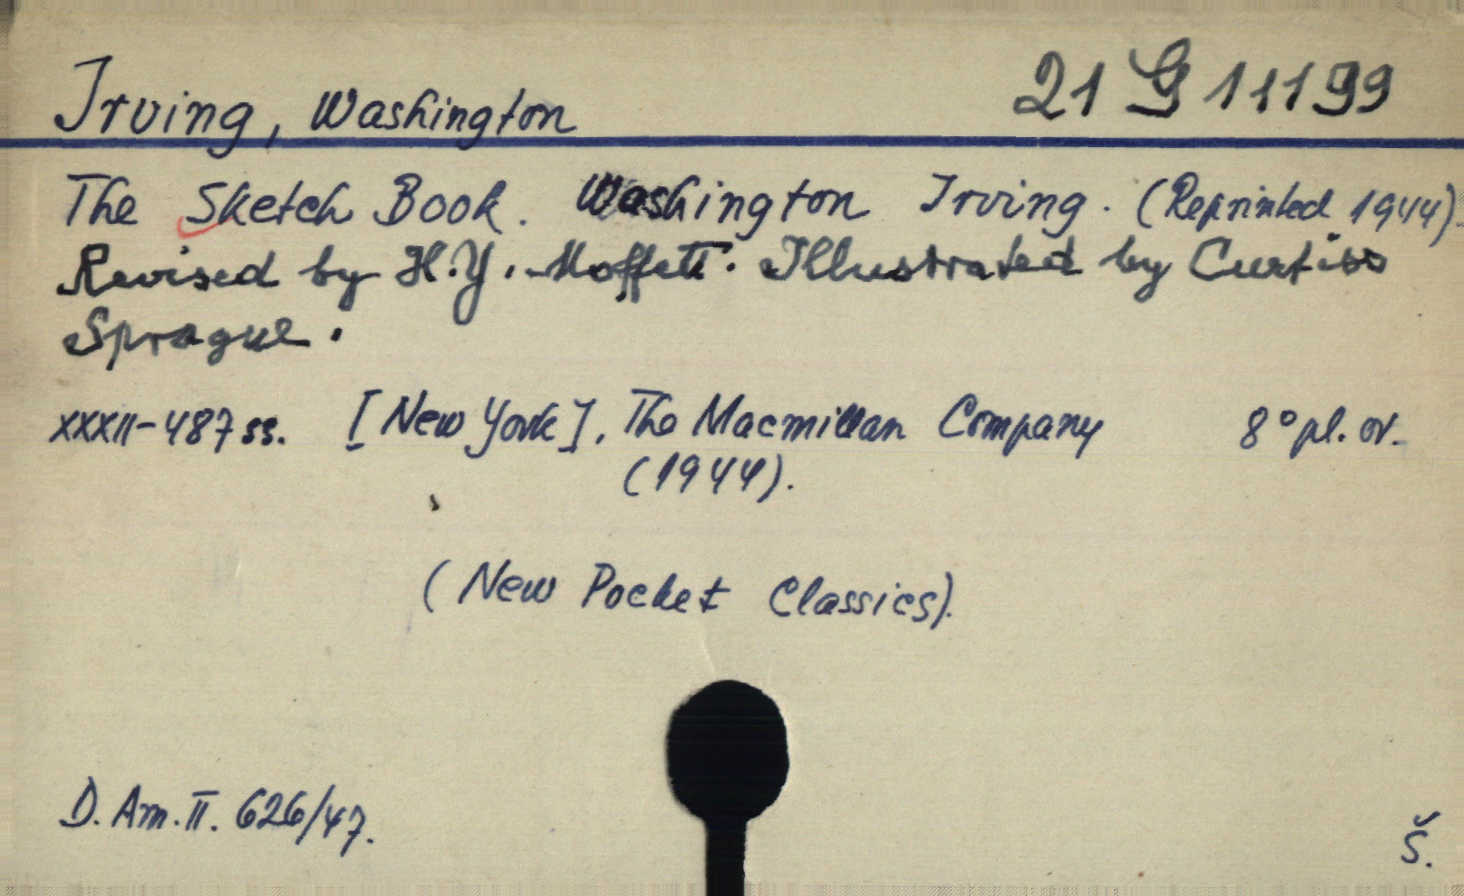 Irving, Washington
21 G 11199
The Sketch Book. Washington Irving. (Reprinted 1944).
Revised by H.Y. Moffett. Illustrated by Curtiss
Sprague.
XXXII-487 ss. [New York], The Macmillan Company 8° pl. or.
(1944).
(New Pocket Classics).
D. Am. II. 626/47.
Š.